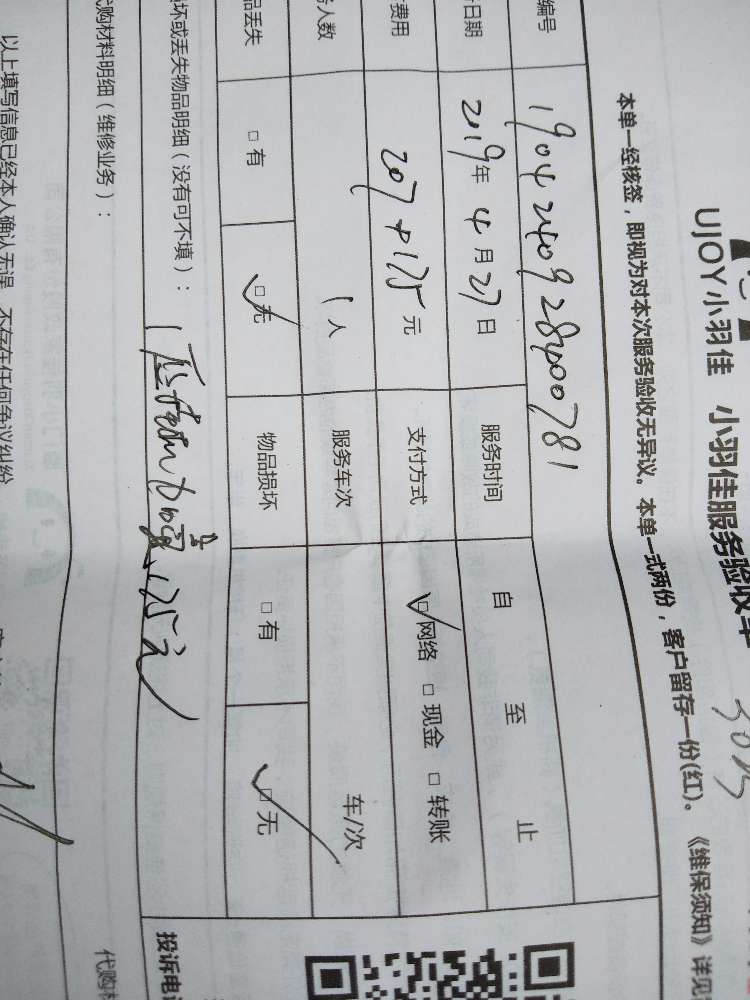 UJOY小羽佳 小羽佳服务验收单
本单一经核签，即视为对本次服务验收无异议。本单一式两份，客户留存一份(红)。《维保须知》详见
编号 1904240928400781
日期 2019年4月27日 服务时间 自 至 止
费用 207+175元 支付方式 ☑网络 □现金 □转账
人数 1人 服务车次 车/次
品丢失 □有 ☑无 物品损坏 □有 ☑无
坏或丢失物品明细（没有可不填）：
175元
购材料明细（维修业务）：
以上填写信息已经本人确认无误，不存在任何争议纠纷
投诉电
代购